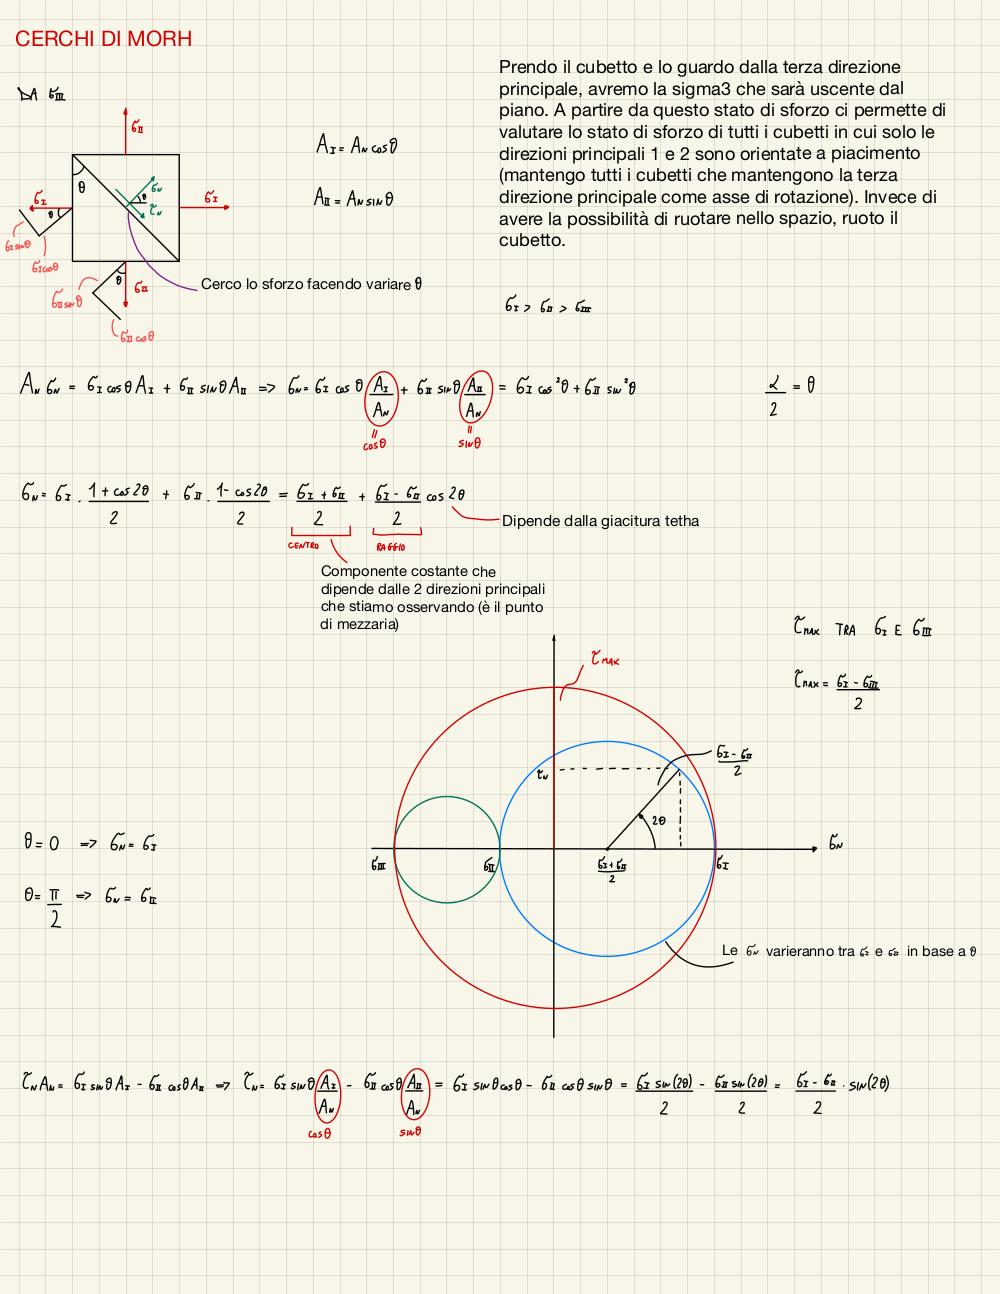 CERCHI DI MORH
Prendo il cubetto e lo guardo dalla terza direzione
principale, avremo la sigma3 che sarà uscente dal
piano. A partire da questo stato di sforzo ci permette di
valutare lo stato di sforzo di tutti i cubetti in cui solo le
direzioni principali 1 e 2 sono orientate a piacimento
(mantengo tutti i cubetti che mantengono la terza
direzione principale come asse di rotazione). Invece di
avere la possibilità di ruotare nello spazio, ruoto il
cubetto.
DA σ_III
σ_II
θ
σ_N
θ
τ_N
σ_I
σ_I
θ
σ_I sinθ
σ_I cosθ
θ
σ_II
σ_II sinθ
σ_II cosθ
A_I = A_N cosθ
A_II = A_N sinθ
Cerco lo sforzo facendo variare θ
σ_I > σ_II > σ_III
A_N σ_N = σ_I cosθ A_I + σ_II sinθ A_II => σ_N = σ_I cosθ A_I/A_N + σ_II sinθ A_II/A_N = σ_I cos²θ + σ_II sin²θ
α/2 = θ
= cosθ
= sinθ
σ_N = σ_I · (1 + cos2θ)/2 + σ_II · (1 - cos2θ)/2 = (σ_I + σ_II)/2 + (σ_I - σ_II)/2 cos2θ
CENTRO
RAGGIO
Dipende dalla giacitura tetha
Componente costante che
dipende dalle 2 direzioni principali
che stiamo osservando (è il punto
di mezzaria)
τ_MAX TRA σ_I E σ_III
τ_MAX = (σ_I - σ_III)/2
τ_MAX
(σ_I - σ_II)/2
τ_N
2θ
σ_N
σ_III
σ_II
(σ_I + σ_II)/2
σ_I
θ = 0 => σ_N = σ_I
θ = π/2 => σ_N = σ_II
Le σ_N varieranno tra σ_I e σ_II in base a θ
τ_N A_N = σ_I sinθ A_I - σ_II cosθ A_II => τ_N = σ_I sinθ A_I/A_N - σ_II cosθ A_II/A_N = σ_I sinθ cosθ - σ_II cosθ sinθ = σ_I sin(2θ)/2 - σ_II sin(2θ)/2 = (σ_I - σ_II)/2 · sin(2θ)
cosθ
sinθ